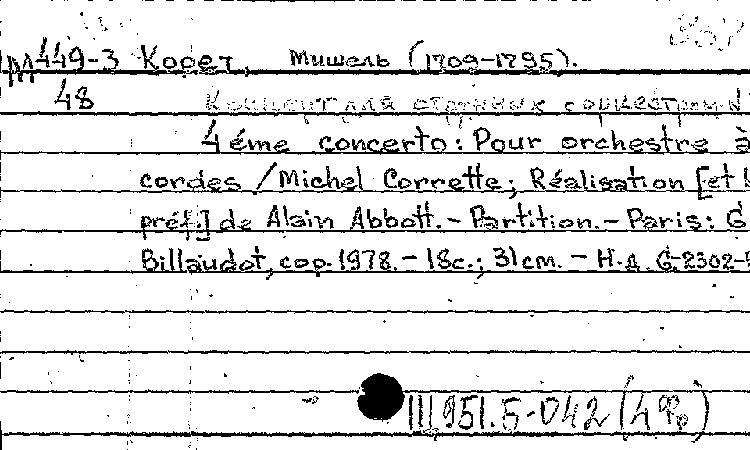 М 449-3 Корет, Мишель (1709-1795).
48 Концерт для струнных с оркестром
4éme concerto: Pour orchestre à
cordes / Michel Corrette; Réalisation [et
préf.] de Alain Abbott. – Partition. – Paris: G
Billaudot, cop. 1978. – 18c.; 31cm. – Н.д. G-2302-
III 951.5-042 (4Фр)